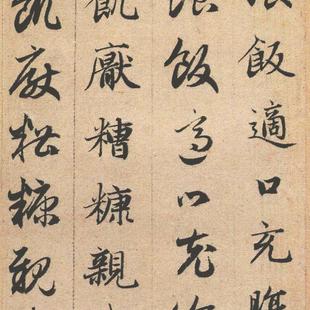 飯適口充
飯適口充
飢厭糟糠親
飢厭糟糠親